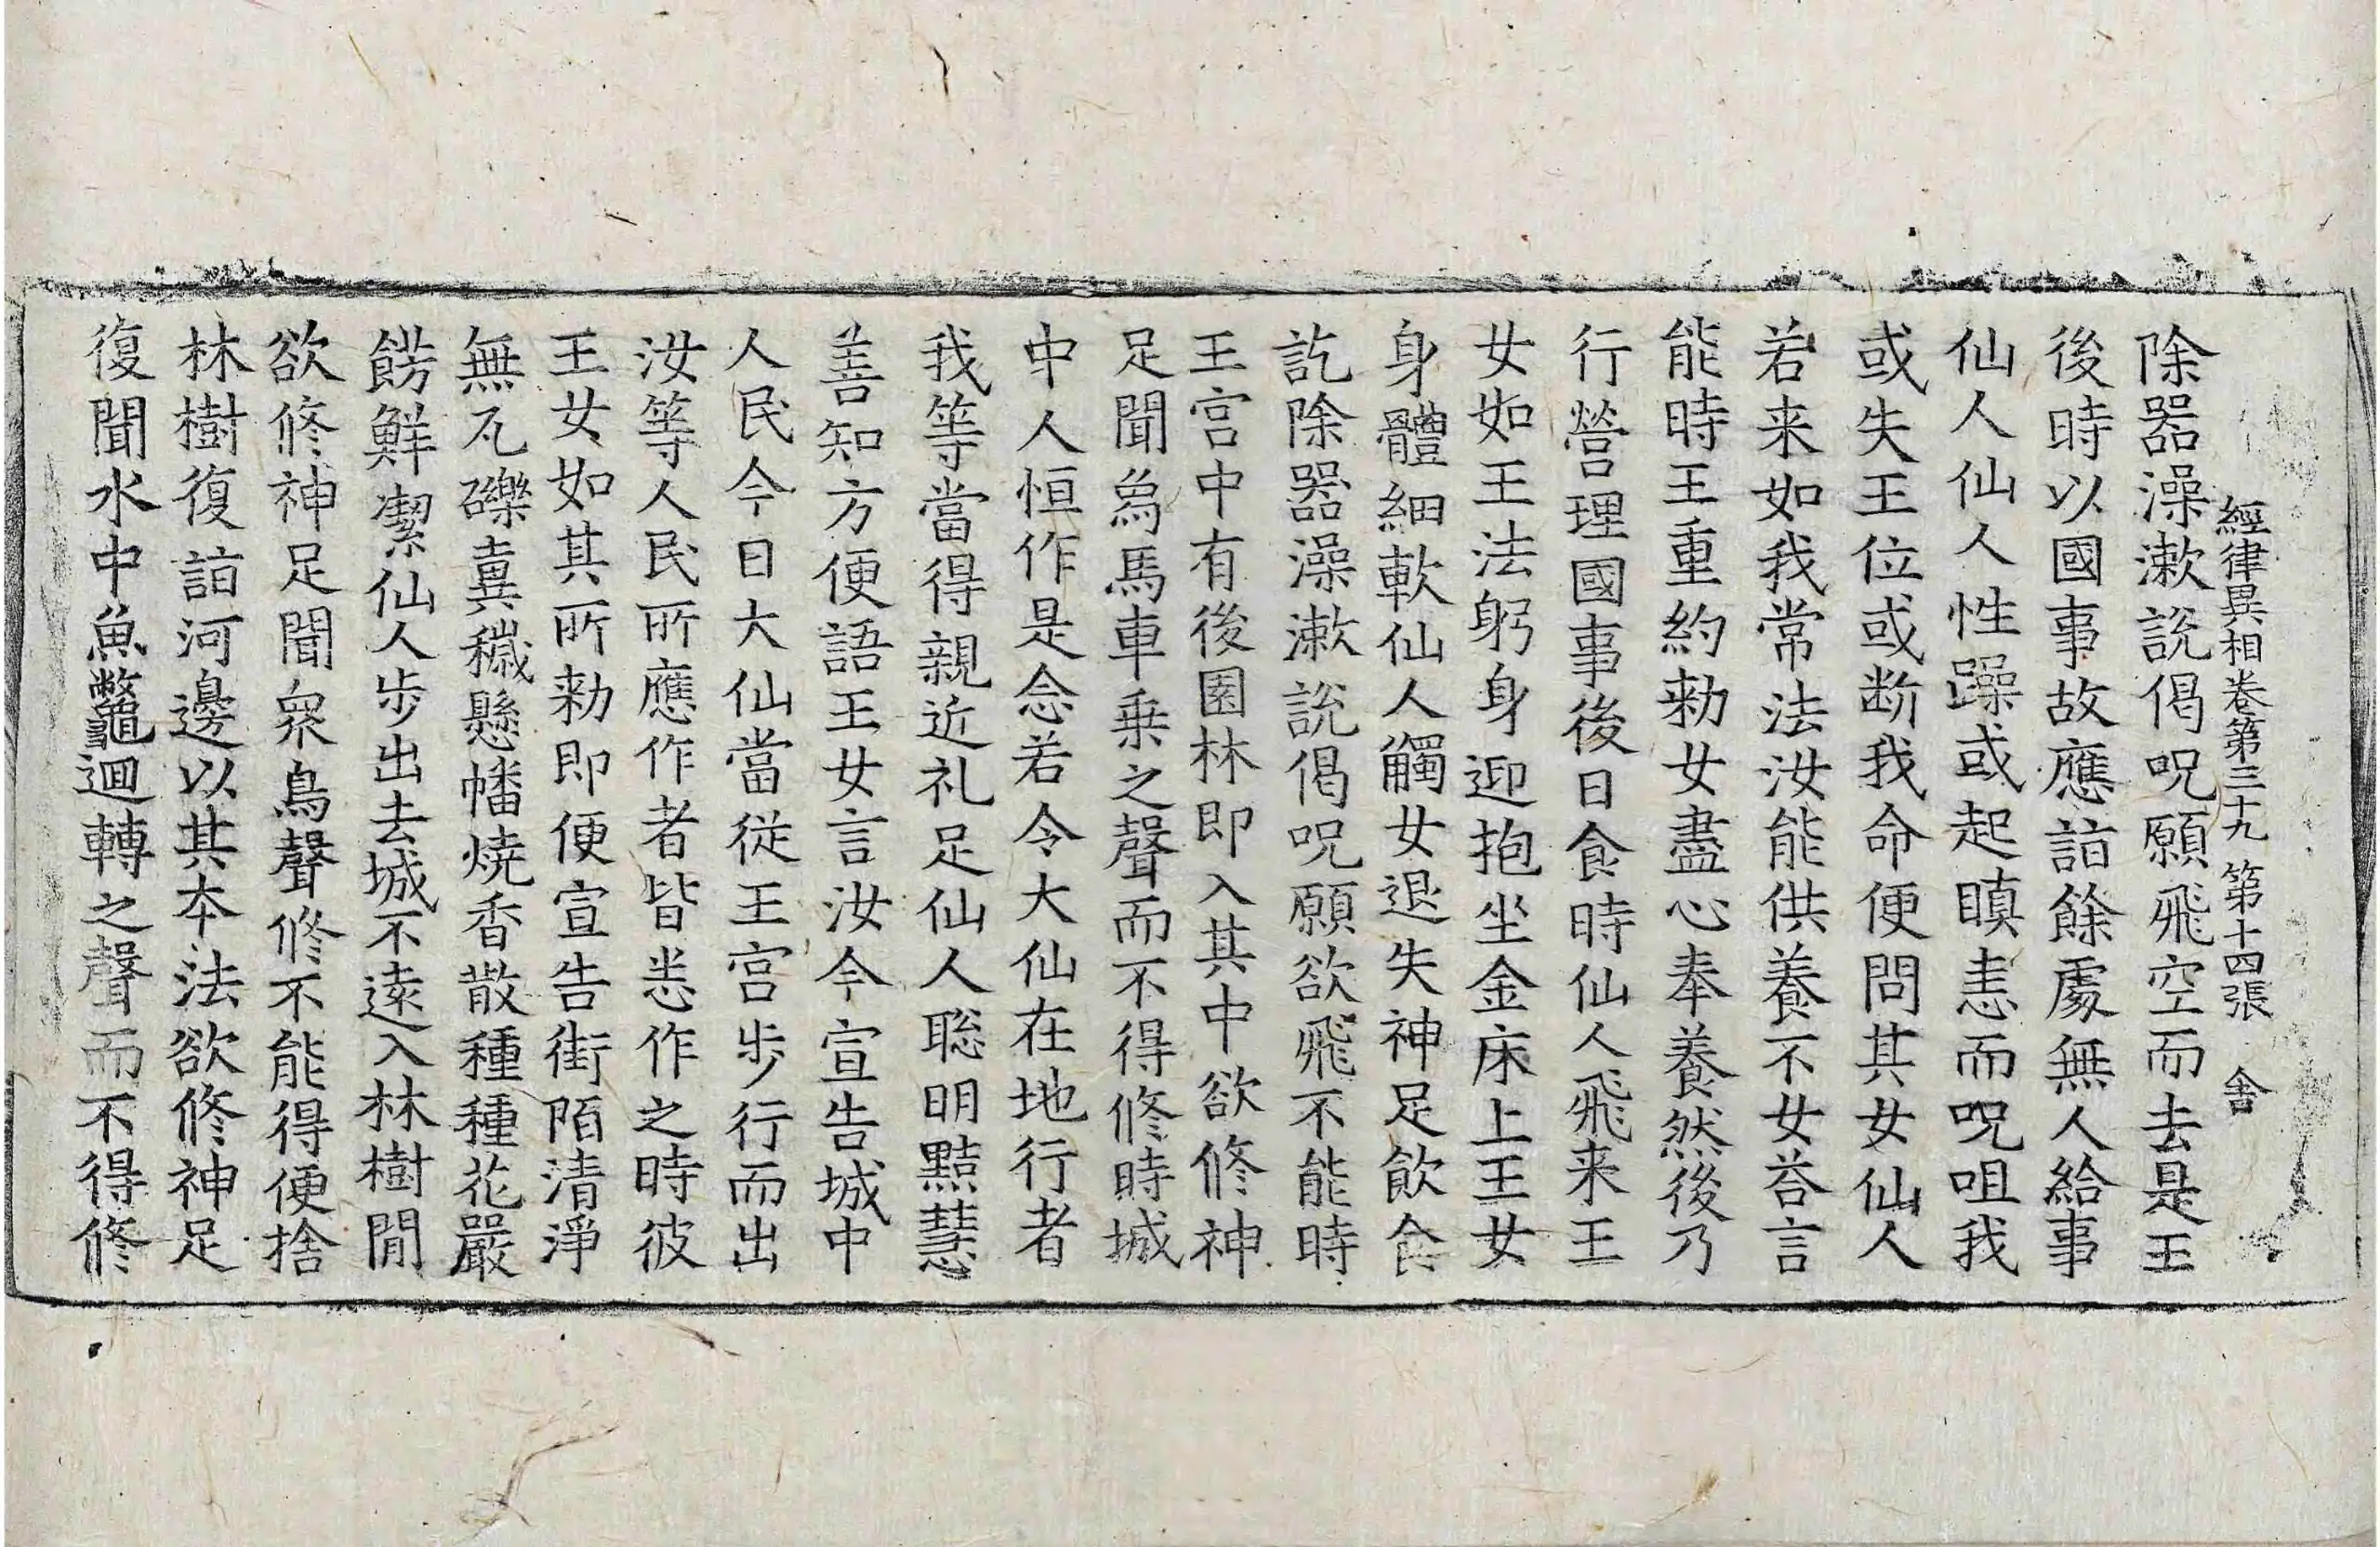 經律異相卷第三十九 第十四張 舍
除器澡漱說偈呪願飛空而去是王
後時以國事故應詣餘處無人給事
仙人仙人性躁或起瞋恚而呪咀我
或失王位或断我命便問其女仙人
若来如我常法汝能供養不女荅言
能時王重約勑女盡心奉養然後乃
行營理國事後日食時仙人飛来王
女如王法躬身迎抱坐金床上王女
身體細軟仙人觸女退失神足飲食
訖除器澡漱說偈呪願欲飛不能時
王宮中有後園林即入其中欲修神
足聞象馬車乗之聲而不得修時城
中人恒作是念若令大仙在地行者
我等當得親近礼足仙人聡明黠慧
善知方便語王女言汝今宣告城中
人民今日大仙當從王宮步行而出
汝等人民所應作者皆悉作之時彼
王女如其所勑即便宣告街陌清淨
無瓦礫糞穢懸幡燒香散種種花嚴
餝鮮潔仙人步出去城不遠入林樹間
欲修神足聞衆鳥聲修不能得便捨
林樹復詣河邊以其本法欲修神足
復聞水中魚鼈迴轉之聲而不得修